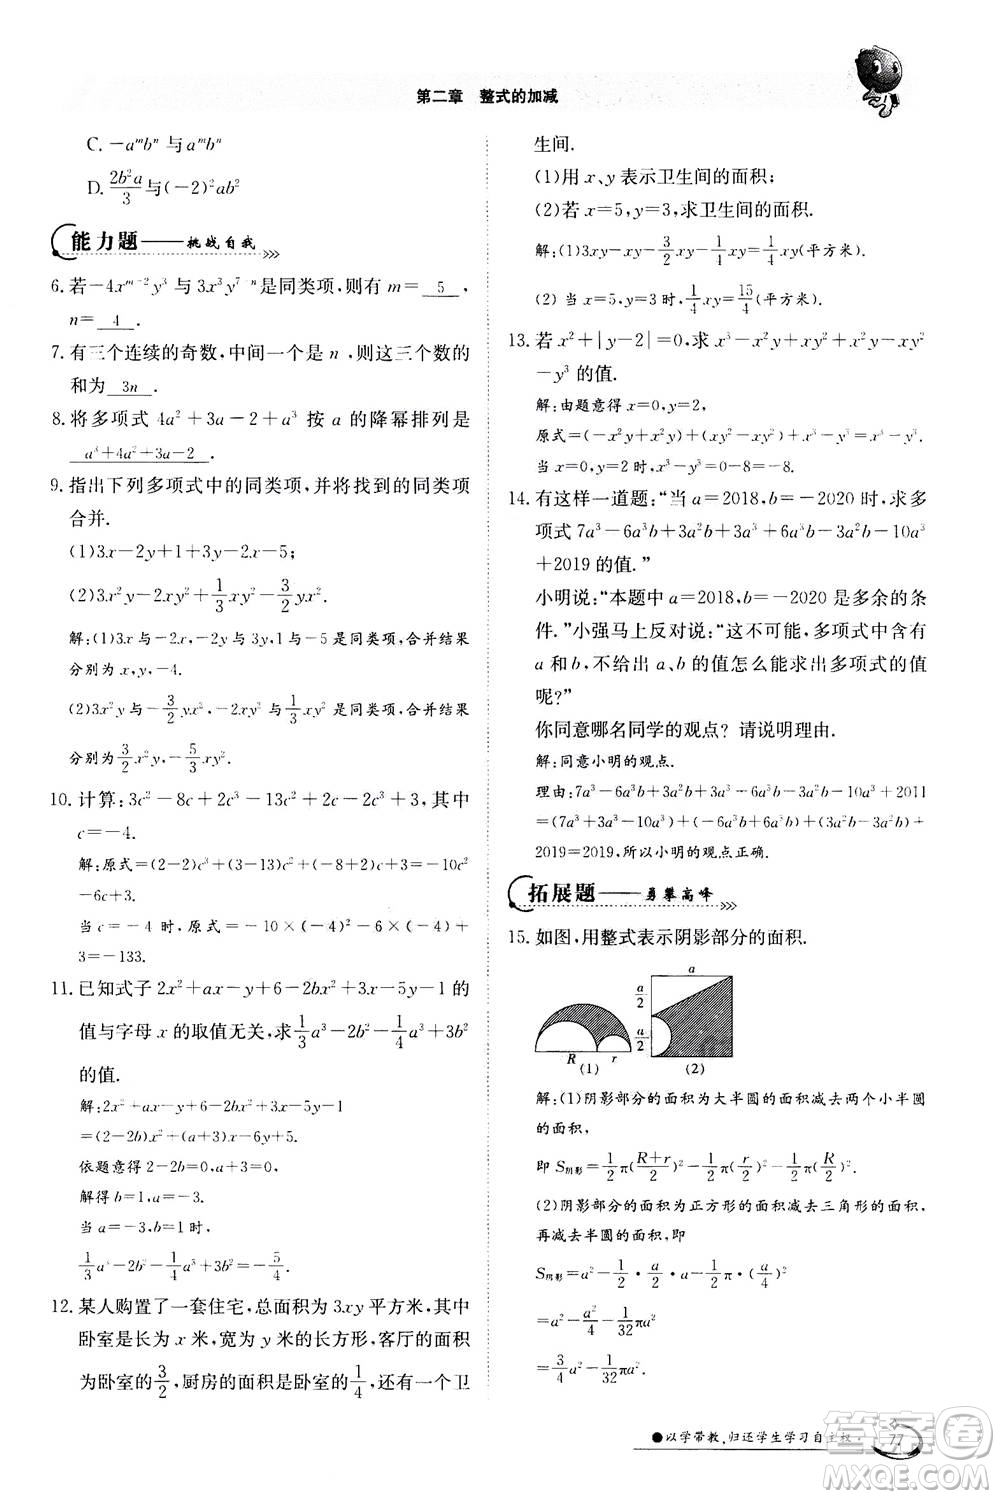 第二章 整式的加减
C. −aᵐbⁿ 与 aᵐbⁿ
D. 2b²a/3 与(−2)²ab²
能力题——挑战自我
6. 若−4xᵐ⁻²y³ 与 3x³y⁷⁻ⁿ是同类项,则有 m= 5 ,
n= 4 .
7. 有三个连续的奇数,中间一个是 n,则这三个数的
和为 3n .
8. 将多项式 4a²+3a−2+a³ 按 a 的降幂排列是
a³+4a²+3a−2 .
9. 指出下列多项式中的同类项,并将找到的同类项
合并.
(1)3x−2y+1+3y−2x−5;
(2)3x²y−2xy²+1/3xy²−3/2yx².
解:(1)3x 与−2x,−2y 与 3y,1 与−5 是同类项,合并结果
分别为 x,y,−4.
(2)3x²y 与−3/2yx²,−2xy² 与1/3xy² 是同类项,合并结果
分别为3/2x²y,−5/3xy².
10. 计算:3c²−8c+2c³−13c²+2c−2c³+3,其中
c=−4.
解:原式=(2−2)c³+(3−13)c²+(−8+2)c+3=−10c²
−6c+3.
当 c=−4 时,原式=−10×(−4)²−6×(−4)+3
=−133.
11. 已知式子 2x²+ax−y+6−2bx²+3x−5y−1 的
值与字母 x 的取值无关,求1/3a³−2b²−1/4a³+3b²
的值.
解:2x²+ax−y+6−2bx²+3x−5y−1
=(2−2b)x²+(a+3)x−6y+5.
依题意得 2−2b=0,a+3=0,
解得 b=1,a=−3.
当 a=−3,b=1 时,
1/3a³−2b²−1/4a³+3b²=−5/4.
12. 某人购置了一套住宅,总面积为 3xy 平方米,其中
卧室是长为 x 米,宽为 y 米的长方形,客厅的面积
为卧室的3/2,厨房的面积是卧室的1/4,还有一个卫
生间.
(1)用 x、y 表示卫生间的面积;
(2)若 x=5,y=3,求卫生间的面积.
解:(1)3xy−xy−3/2xy−1/4xy=1/4xy(平方米).
(2) 当 x=5,y=3 时,1/4xy=15/4(平方米).
13. 若 x²+|y−2|=0,求 x³−x²y+xy²+x²y−xy²
−y³ 的值.
解:由题意得 x=0,y=2,
原式=(−x²y+x²y)+(xy²−xy²)+x³−y³=x³−y³.
当 x=0,y=2 时,x³−y³=0−8=−8.
14. 有这样一道题:“当 a=2018,b=−2020 时,求多
项式 7a³−6a³b+3a²b+3a³+6a³b−3a²b−10a³
+2019 的值.”
小明说:“本题中 a=2018,b=−2020 是多余的条
件.”小强马上反对说:“这不可能,多项式中含有
a 和 b,不给出 a、b 的值怎么能求出多项式的值
呢?”
你同意哪名同学的观点？请说明理由.
解:同意小明的观点.
理由:7a³−6a³b+3a²b+3a³+6a³b−3a²b−10a³+2011
=(7a³+3a³−10a³)+(−6a³b+6a³b)+(3a²b−3a²b)+
2019=2019,所以小明的观点正确.
拓展题——勇攀高峰
15. 如图,用整式表示阴影部分的面积.
a
a/2
a/2
R r
(1) (2)
解:(1)阴影部分的面积为大半圆的面积减去两个小半圆
的面积,
即 S阴影=1/2π(R+r/2)²−1/2π(r/2)²−1/2π(R/2)².
(2)阴影部分的面积为正方形的面积减去三角形的面积,
再减去半圆的面积,即
S阴影=a²−1/2·a/2·a−1/2·π·(a/2/2)²
=a²−a²/4−1/32πa²
=3/4a²−1/32πa².
●以学带教,归还学生学习自主权 77
答案卷
MXQE.COM